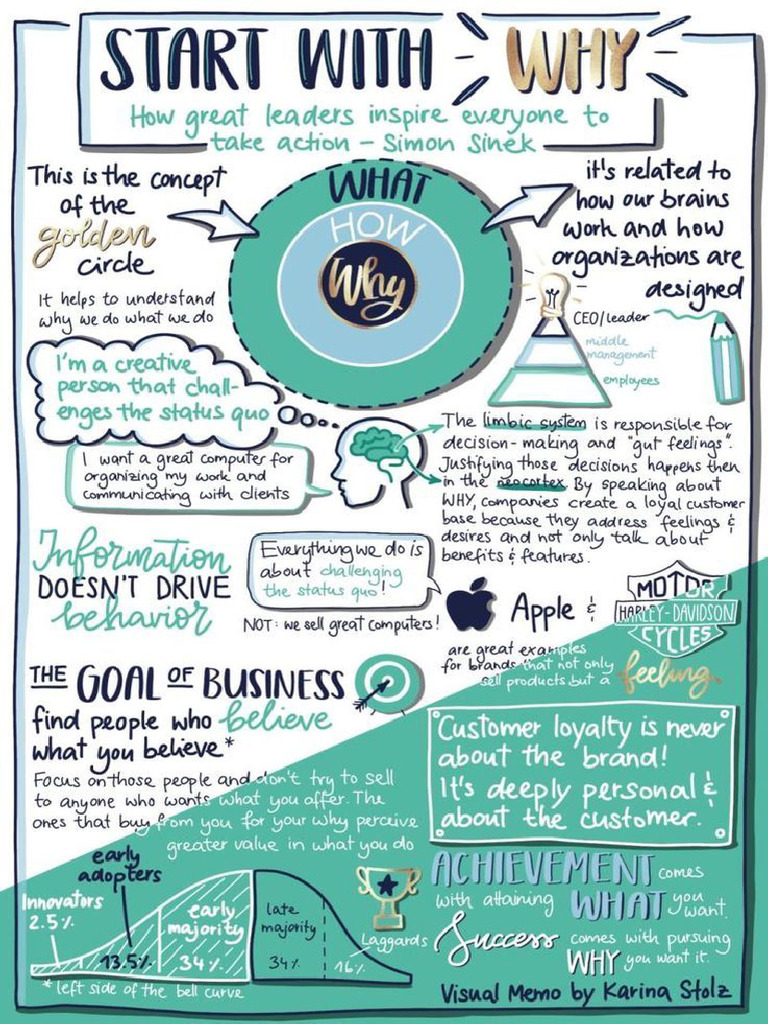 START WITH WHY
How great leaders inspire everyone to
take action – Simon Sinek
This is the concept
of the
golden
circle
It helps to understand
why we do what we do
WHAT
HOW
Why
it's related to
how our brains
work and how
organizations are
designed
CEO/leader
middle
management
employees
I'm a creative
person that chall-
enges the status quo
I want a great computer for
organizing my work and
communicating with clients
The limbic system is responsible for
decision-making and "gut feelings".
Justifying those decisions happens then
in the neocortex. By speaking about
WHY, companies create a loyal customer
base because they address feelings &
desires and not only talk about
benefits & features.
Information
DOESN'T DRIVE
behavior
Everything we do is
about challenging
the status quo!
NOT: we sell great computers!
Apple &
MOTOR
HARLEY-DAVIDSON
CYCLES
are great examples
for brands that not only
sell products but a
feeling.
THE GOAL OF BUSINESS
find people who believe
what you believe*
Focus on those people and don't try to sell
to anyone who wants what you offer. The
ones that buy from you for your why perceive
greater value in what you do
Customer loyalty is never
about the brand!
It's deeply personal &
about the customer.
Innovators
2.5%
early
adopters
13.5%
early
majority
34%
late
majority
34%
Laggards
16%
* left side of the bell curve
ACHIEVEMENT comes
with attaining WHAT you
want.
Success comes with pursuing
WHY you want it.
Visual Memo by Karina Stolz